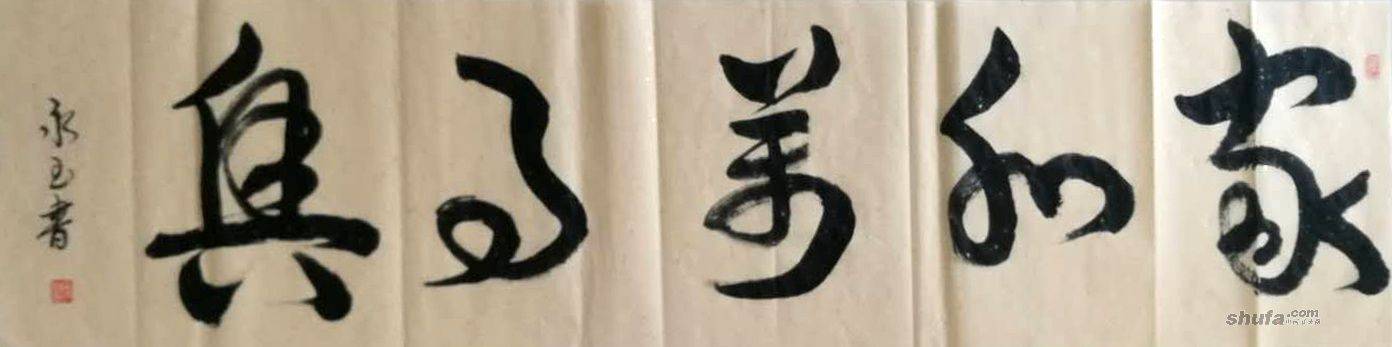 家和萬事興
永玉書
shufa.com